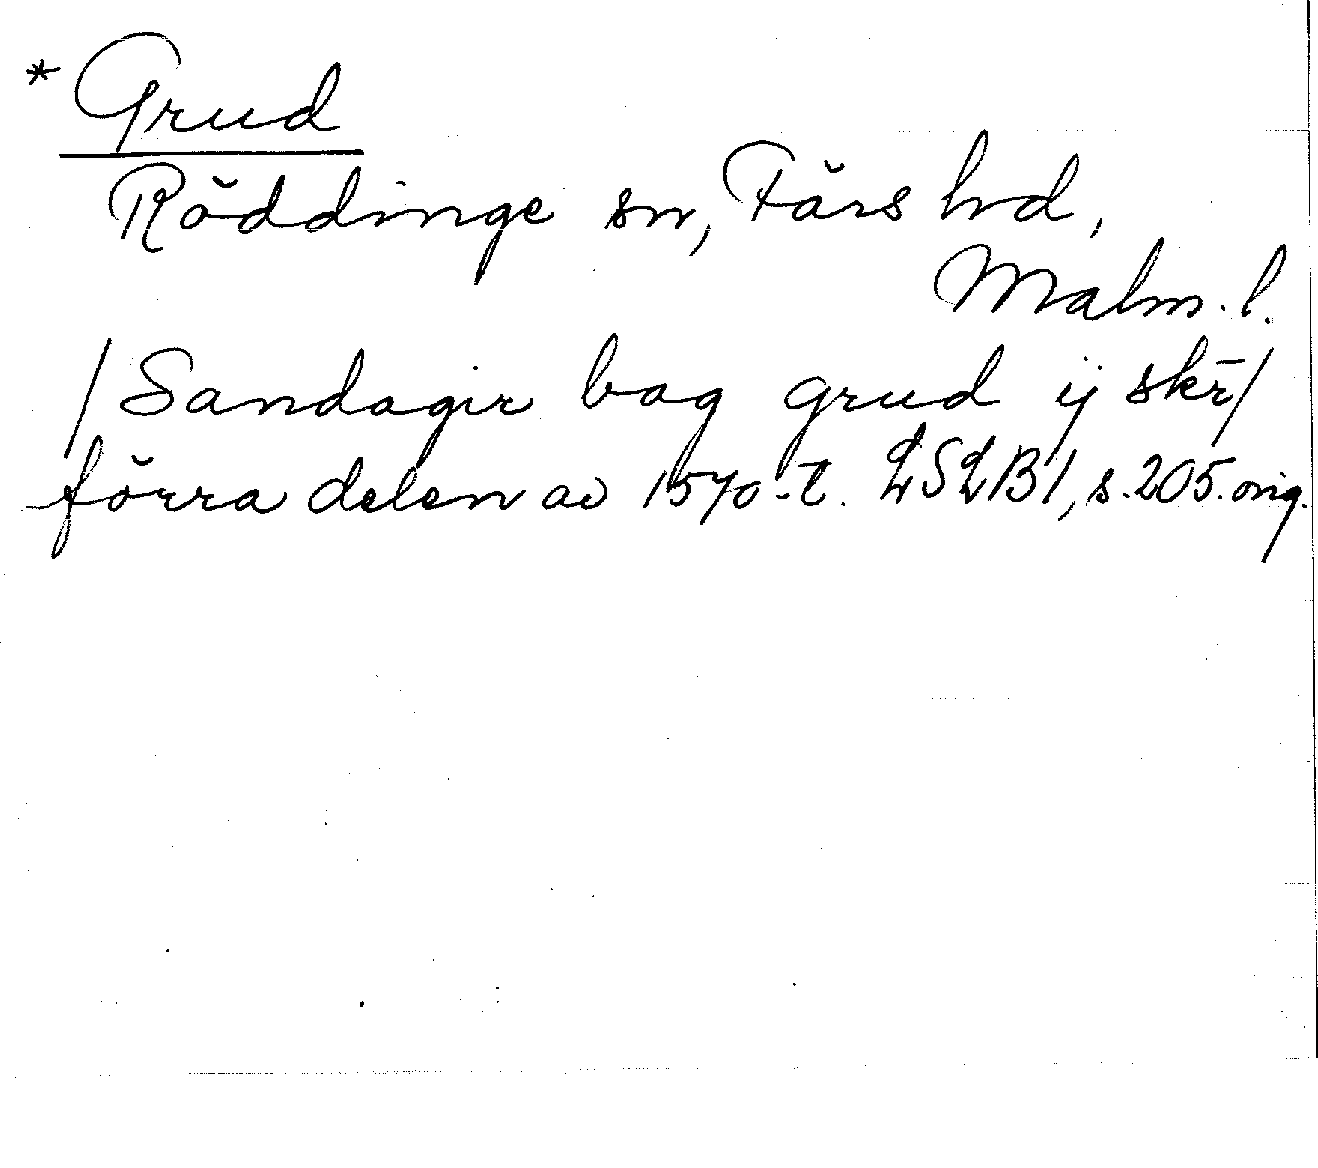 * Grud
Röddinge sn, Färs hd,
Malm. l.
/Sandagir bag grud ij skr̄/
förra delen av 1570-t. LSLB 1, s. 205. orig.